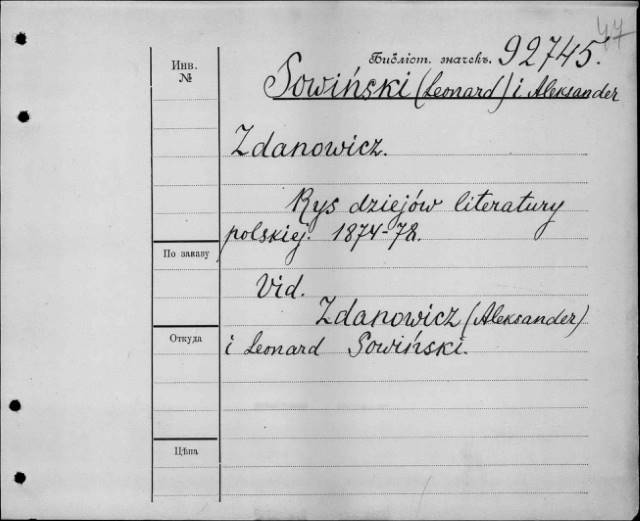 47
Инв.
№
Библіот. значекъ. 92745.
Sowiński (Leonard) i Aleksander
Zdanowicz.
Rys dziejów literatury
polskiej. 1874-78.
По заказу
Vid.
Zdanowicz (Aleksander)
Откуда
i Leonard Sowiński.
Цѣна